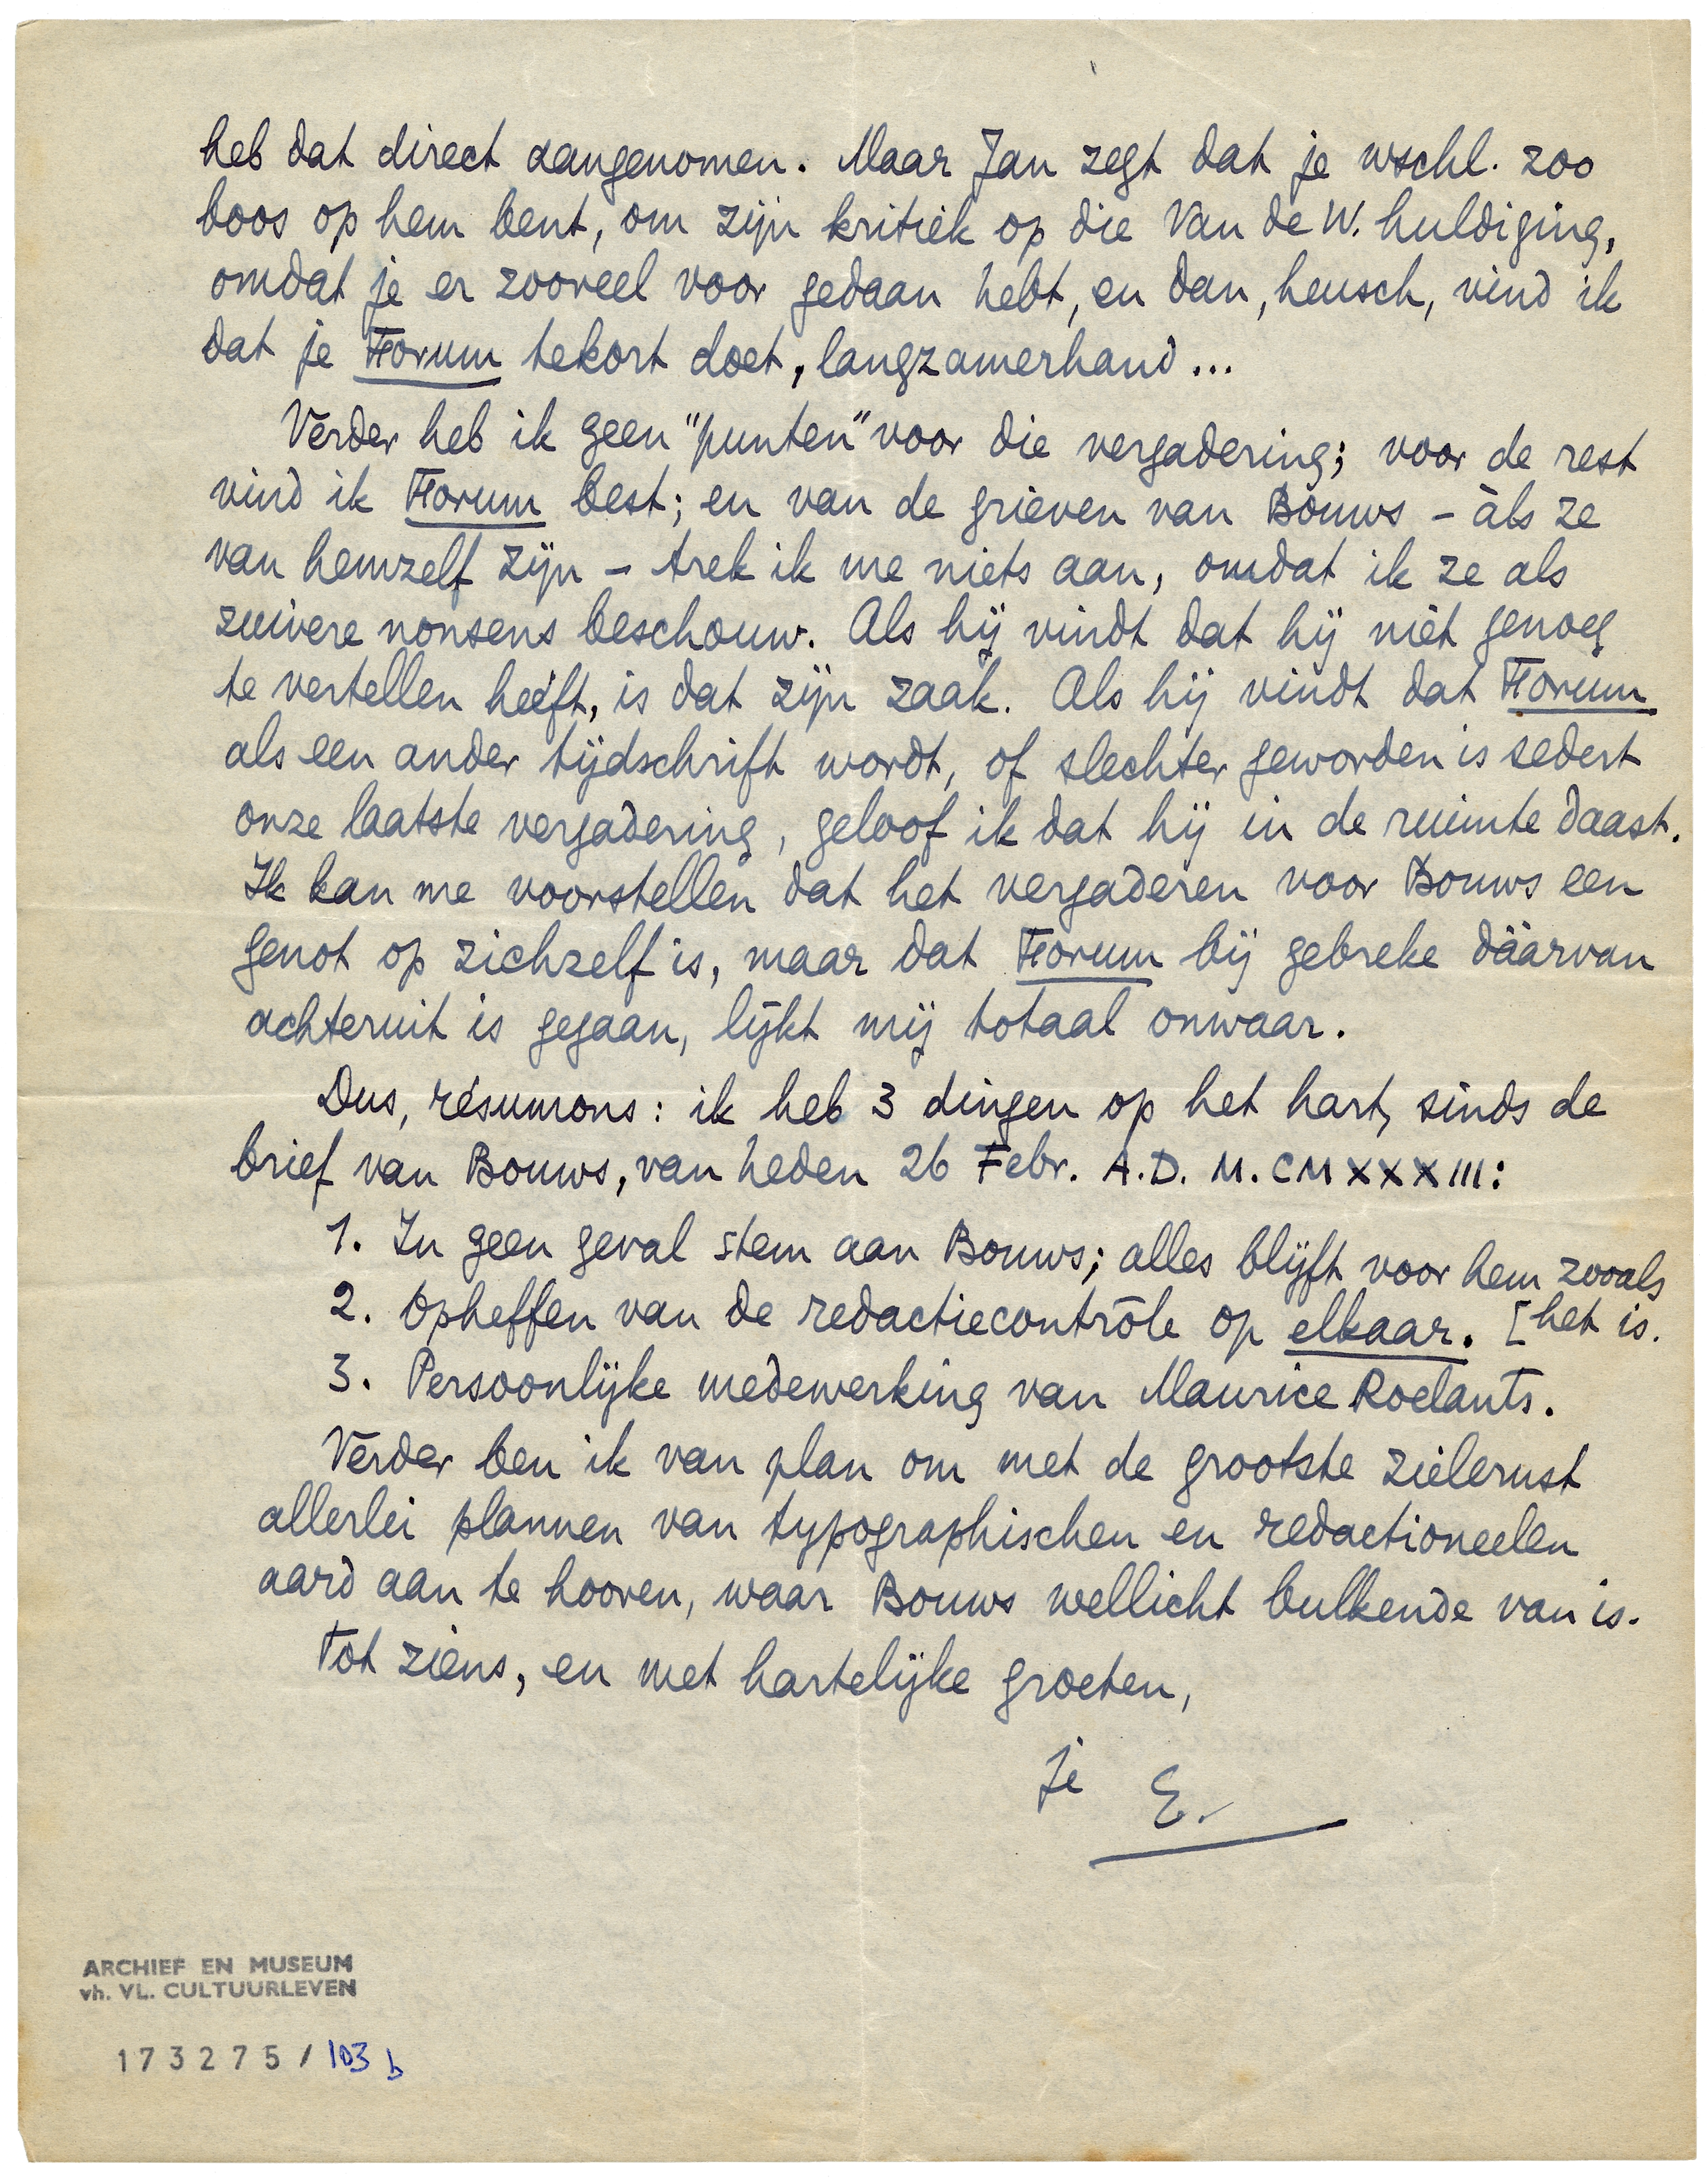 heb dat direct aangenomen. Maar Jan zegt dat je wschl. zoo
boos op hem bent, om zijn kritiek op die Van de W. huldiging,
omdat je er zooveel voor gedaan hebt, en dan, heusch, vind ik
dat je Forum tekort doet, langzamerhand...
Verder heb ik geen "punten" voor die vergadering; voor de rest
vind ik Forum best; en van de grieven van Bouws - àls ze
van hemzelf zijn - trek ik me niets aan, omdat ik ze als
zuivere nonsens beschouw. Als hij vindt dat hij niet genoeg
te vertellen heeft, is dat zijn zaak. Als hij vindt dat Forum
als een ander tijdschrift wordt, of slechter geworden is sedert
onze laatste vergadering, geloof ik dat hij in de ruimte daast.
Ik kan me voorstellen dat het vergaderen voor Bouws een
genot op zichzelf is, maar dat Forum bij gebreke dáárvan
achteruit is gegaan, lijkt mij totaal onwaar.
Dus, résumons: ik heb 3 dingen op het hart, sinds de
brief van Bouws, van heden 26 Febr. A.D. M.CMXXXIII:
1. In geen geval stem aan Bouws; alles blijft voor hem zooals
2. Opheffen van de redactiecontrôle op elkaar. [het is.
3. Persoonlijke medewerking van Maurice Roelants.
Verder ben ik van plan om met de grootste zielerust
allerlei plannen van typographischen en redactioneelen
aard aan te hooren, waar Bouws wellicht bulkende van is.
Tot ziens, en met hartelijke groeten,
je E.
ARCHIEF EN MUSEUM
vh. VL. CULTUURLEVEN
173275/103 b